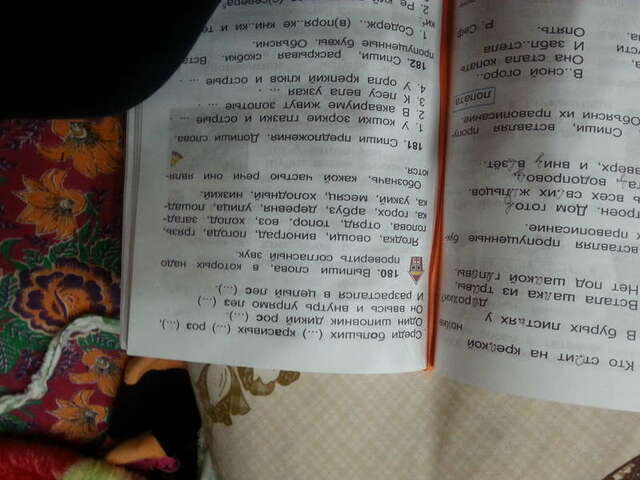 Кто стоит на крепкой
В бурых листьях у
дорожки?
Встала шапка из травы,
Нет под шапкой головы.
вставляя пропущенные бук-
х правописание.
троен. Дом готов
ь всех своих жильцов.
водопровод,
вверх, и вниз везёт.
Спиши, вставляя пропу-
Объясни их правописание.
лопата
В..сной огоро..
Она стала копать
И забл..стела
Опять.
Р. Сеф
Среди больших (...) красивых (...) роз (...),
Один шиповник дикий рос (...).
Он ввысь и внутрь упрямо лез (...)
И разрастался в целый лес (...).
180. Выпиши слова, в которых надо
проверить согласный звук.
Ягодка, овощи, виноград, погода, грязь,
голова, отряд, топор, воз, холод, загад-
ка, горох, арбуз, деревня, улица, лошад-
ка, узкий, месяц, холодный, низкий.
Обозначь, какой частью речи они явля-
ются.
181. Спиши предложения. Допиши слова.
1. У кошки зоркие глазки и острые ... .
2. В аквариуме живут золотые ... .
3. К лесу вела узкая ... .
4. У орла крепкий клюв и острые ... .
182. Спиши, раскрывая скобки. Вста
пропущенные буквы. Объясни.
1. Содерж.. (в)поря..ке кни..ки и те
2. Ре